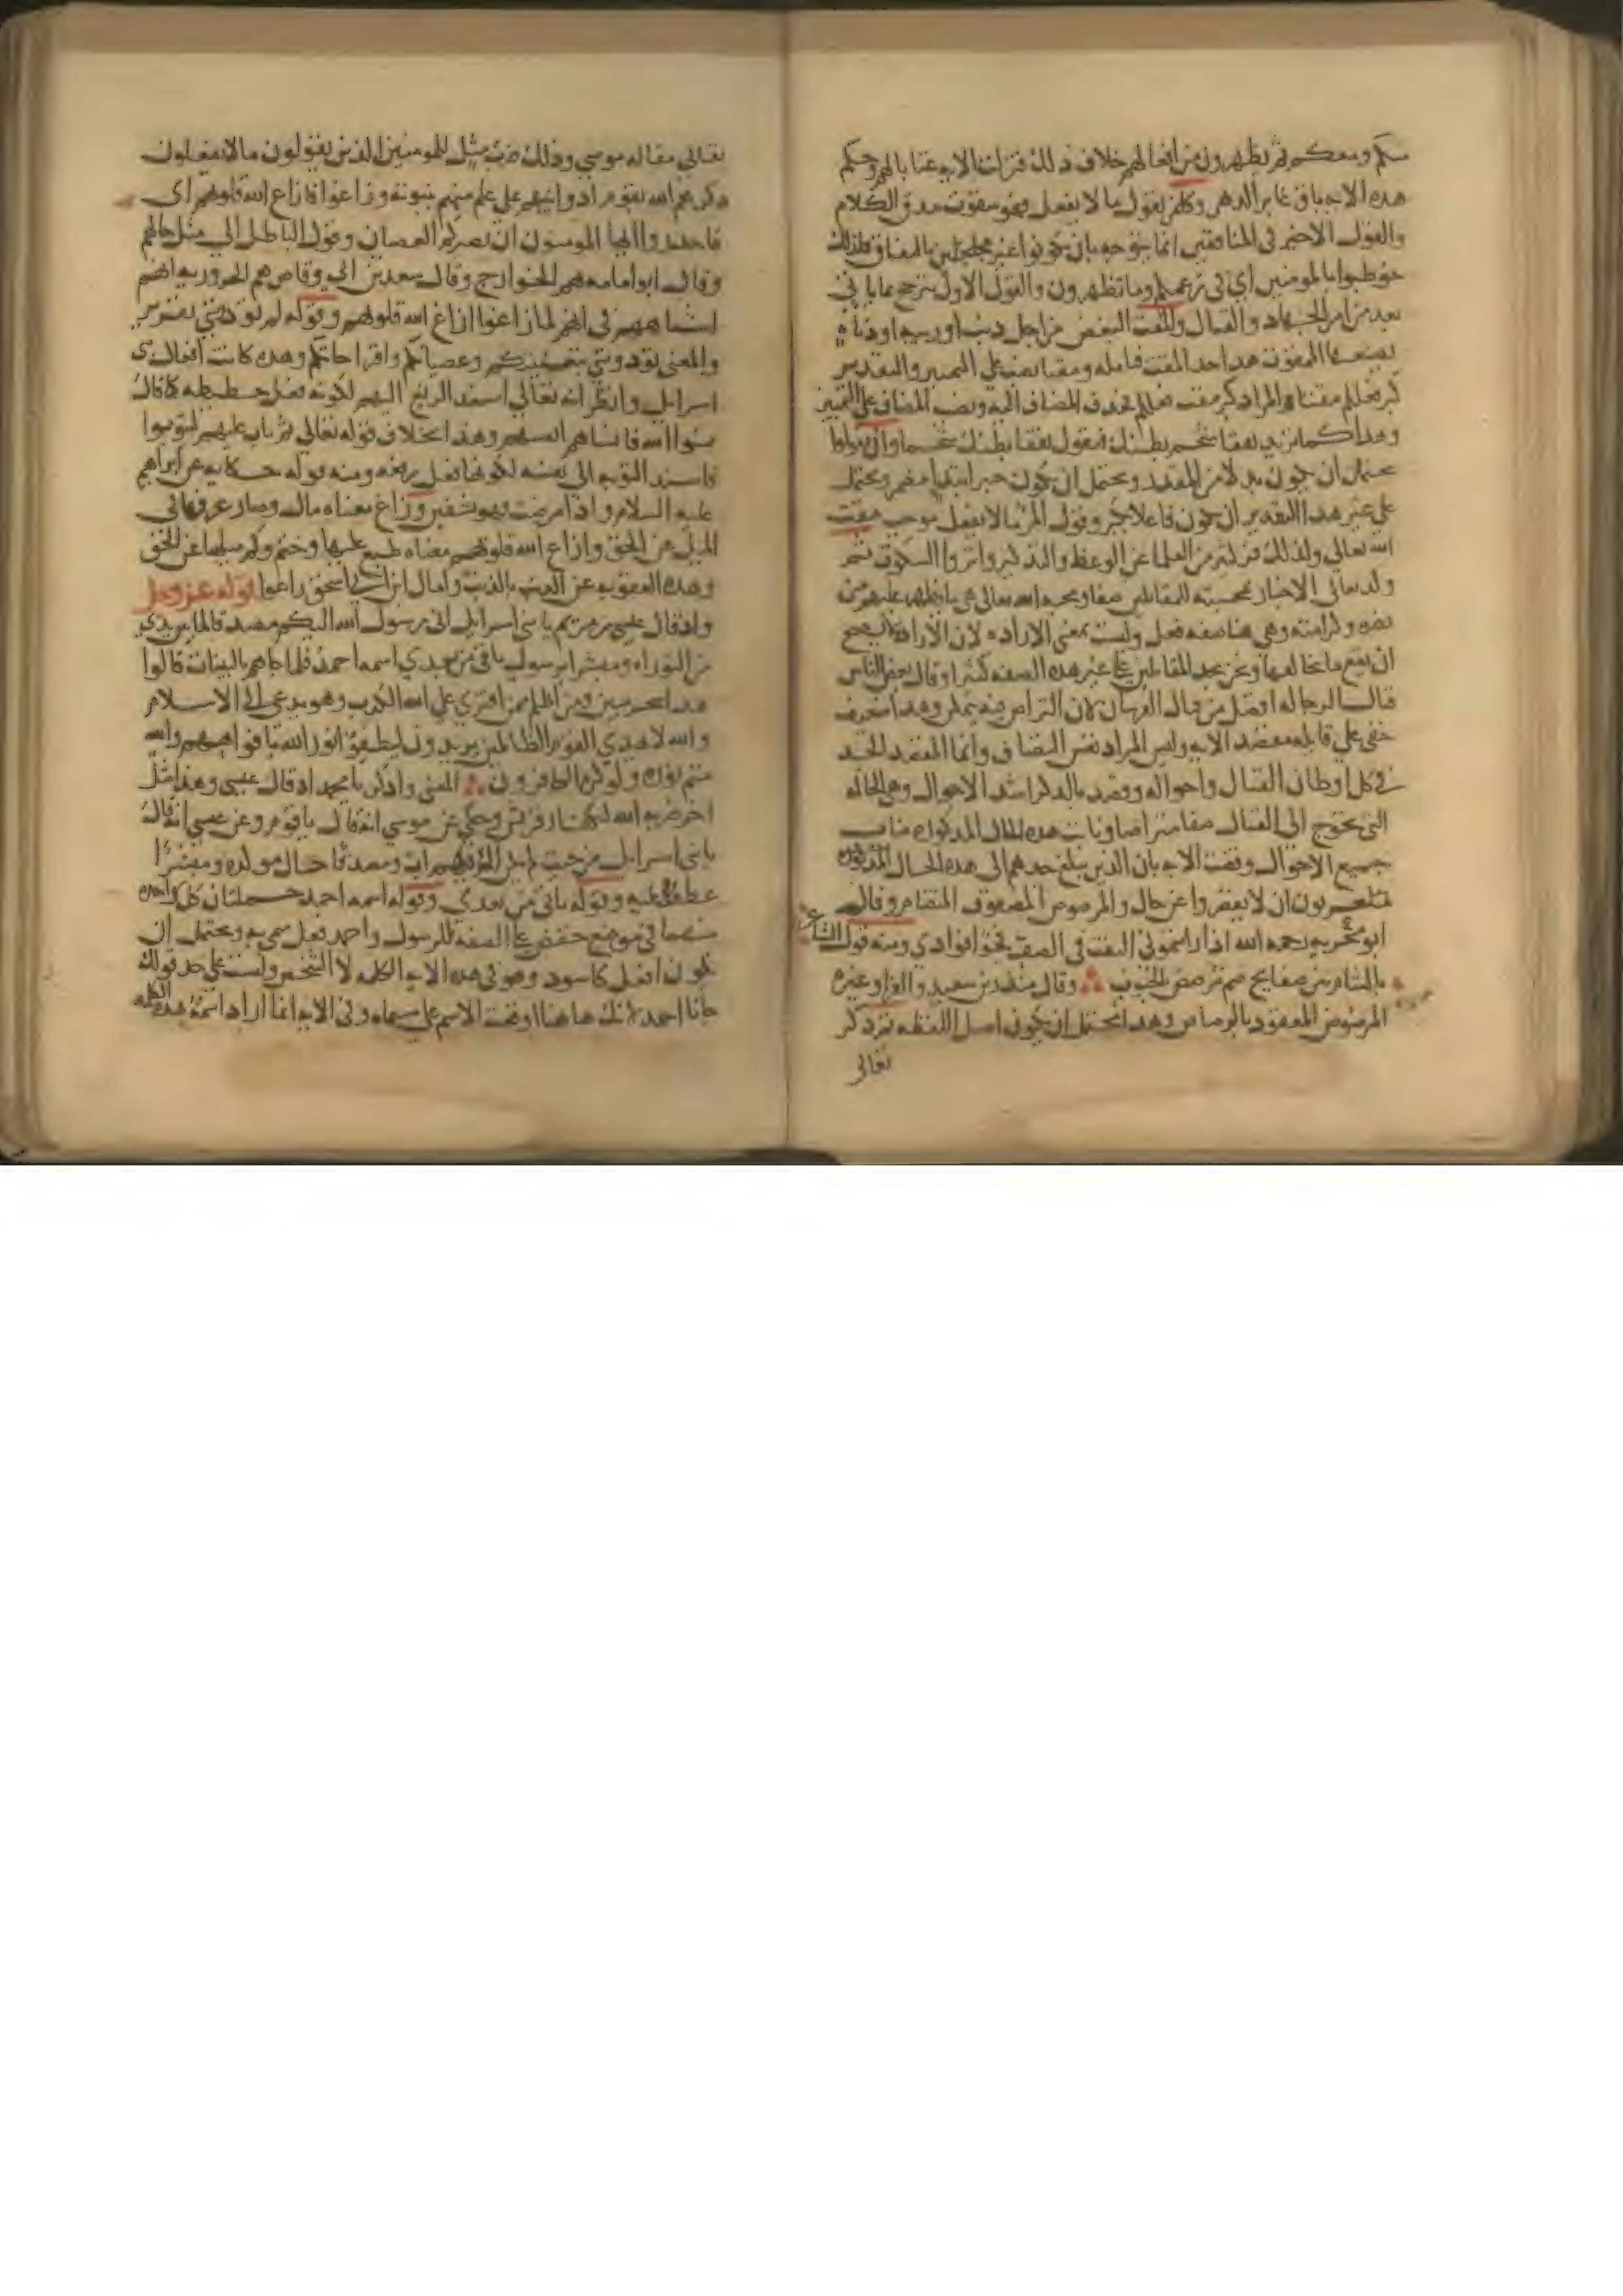 منكم ومعكم ثم يظهرون من افعالهم خلاف ذلك فنزلت الاية عتابا لهم وحكم
هذه الاية باق غابر الدهر وكل من يقول ما لا يفعل فهو ممقوت مذق الكلام
والقول الاخير في المنافقين انما يتوجه بان يكونوا غير مجلحين بالنفاق فلذلك
خوطبوا بالمومنين اي في زعمكم وما تظهرون والقول الاول يترجح بما ياتي
بعد من امر الجهاد والقتال والمقت البغض من اجل ذنب او ريبة او دناءة
يصنعها الممقوت هذا حد المقت فتامله ومقتا نصب على التمييز والتقدير
كبر فعلكم مقتا والمراد كبر مقت فعلكم فحذف المضاف اليه ونصب المضاف على التمييز
وهذا كما تقول تفقا شحم بطنك فتقول تفقا بطنك شحما وان تقولوا
يحتمل ان يكون بدلا من المقدر ويحتمل ان يكون خبر ابتداء مضمر ويحتمل
على غير هذا التقدير ان يكون فاعلا بكبر وقول المرء ما لا يفعل موجب مقت
الله تعالى ولذلك فر كثير من العلما عن الوعظ والتذكير واثروا السكوت ثم
وكد تعالى الاخبار بمحبته للمقاتلين صفا ومحبة الله تعالى هي ما يظهر عليهم من
نصره وكرامته وهي هنا صفة فعل وليست بمعنى الارادة لان الارادة لا يصح
ان يقع ما يخالفها ونحن نجد المقاتلين على غير هذه الصفة كثيرا وقال بعض الناس
قتال الرجالة افضل من قتال الفرسان لان التراص فيه يتمكن وهذا ضعيف
خفي على قائله مقصد الاية وليس المراد نفس التصاف وانما المقصد الجد
في كل اوطان القتال واحواله وقصد بالذكر اشد الاحوال وهي الحالة
التي تحوج الى القتال صفا متراصا ونابت هذه الحال المذكورة مناب
جميع الاحوال وقضت الاية بان الذين يبلغ جدهم الى هذه الحال المذكورة
حريون ان لا يقصروا عن حال والمرصوص المصفوف المتضام وقال
ابو بحرية رحمه الله اذا رايتموني التفت في الصف فجؤا فوادي ومنه قول الشاعر
بالشام بين صفايح صم ترصص بالجنوب وقال منذر بن سعيد والفراء وغيره
المرصوص المعقود بالرصاص وهذا يحتمل ان يكون اصل اللفظة ثم ذكر
تعالى
تعالى مقالة موسى وذلك ضرب مثل للمومنين الذين يقولون ما لا يفعلون
ذكرهم الله بقوم اذوا نبيهم على علم منهم بنبوته وزاغوا فازاغ الله قلوبهم اي
فاحذروا ايها المومنون ان يصيركم العصيان وقول الباطل الى مثل حالهم
وقال ابو امامة هم الخوارج وقال سعد بن ابي وقاص هم الحرورية المعنى
اشباههم في انهم لما زاغوا ازاغ الله قلوبهم وقوله لم تؤذونني تقرير
والمعنى تؤذونني بتعنتكم وعصيانكم واقتراحاتكم وهذه كانت افعال بني
اسرائيل وانظر انه تعالى اسند الزيغ اليهم لكونه فعل حطيطة كما قال
نسوا الله فانساهم انفسهم وهذا بخلاف قوله تعالى ثم تاب عليهم ليتوبوا
فاسند التوبة الى نفسه لكونها فعل رفعة ومنه قوله حكاية عن ابراهيم
عليه السلام واذا مرضت فهو يشفين وزاغ معناه مال وصار عرفها في
الميل عن الحق وازاغ الله قلوبهم معناه طبع عليها وختم وكثر ميلها عن الحق
وهذه العقوبة عن الذنب بالذنب وامال ابن ابي اسحق زاغوا قوله عز وجل
واذ قال عيسى بن مريم يا بني اسرائيل اني رسول الله اليكم مصدقا لما بين يدي
من التوراة ومبشرا برسول ياتي من بعدي اسمه احمد فلما جاهم بالبينات قالوا
هذا سحر مبين ومن اظلم ممن افترى على الله الكذب وهو يدعى الى الاسلام
والله لا يهدي القوم الظالمين يريدون ليطفؤا نور الله بافواههم والله
متم نوره ولو كره الكافرون المعنى واذكر يا محمد اذ قال عيسى وهذا مثل
اخر ضربه الله لكفار قريش وحكي عن موسى انه قال يا قوم وعن عيسى انه قال
يا بني اسرائيل من حيث لم يكن له فيهم اب ومصدقا حال موكدة ومبشرا
عطف عليه وقوله ياتي من بعدي وقوله اسمه احمد جملتان كل واحدة
منهما في موضع خفض على الصفة للرسول واحمد فعل سمي به ويحتمل ان
يكون افعل كاسود وهو في هذه الاية الكلمة لا الشخص وليست على حد قولك
جانا احمد لانك هاهنا اوقعت الاسم على مسماه وفي الاية انما اراد اسمه هذه الكلمة